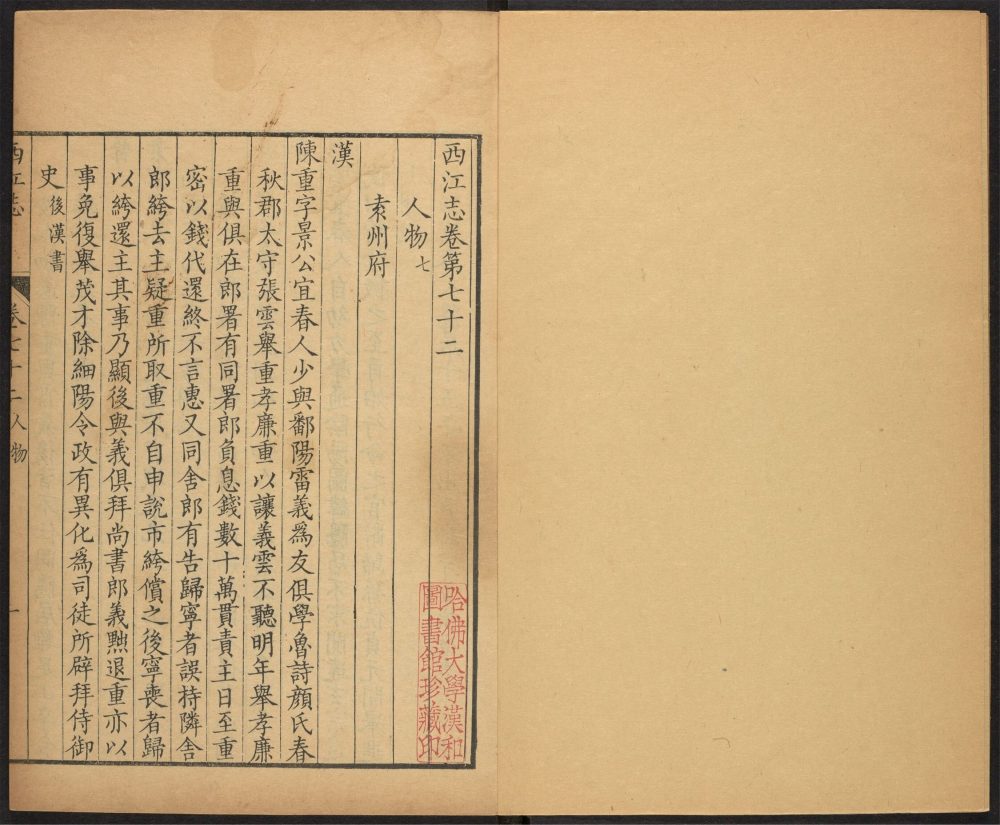 西江志卷第七十二
人物七
袁州府
漢
陳重字景公宜春人少與鄱陽雷義爲友俱學魯詩顏氏春
秋郡太守張雲舉重孝廉重以讓義雲不聽明年舉孝廉
重與俱在郎署有同署郎負息錢數十萬貫責主日至重
密以錢代還終不言惠又同舍郎有告歸寧者誤持隣舍
郎絝去主疑重所取重不自申說市絝償之後寧喪者歸
以絝還主其事乃顯後與義俱拜尚書郎義黜退重亦以
事免復舉茂才除細陽令政有異化爲司徒所辟拜侍御
史後漢書
西江志 卷七十二人物 一
哈佛大學漢和
圖書館珍藏印